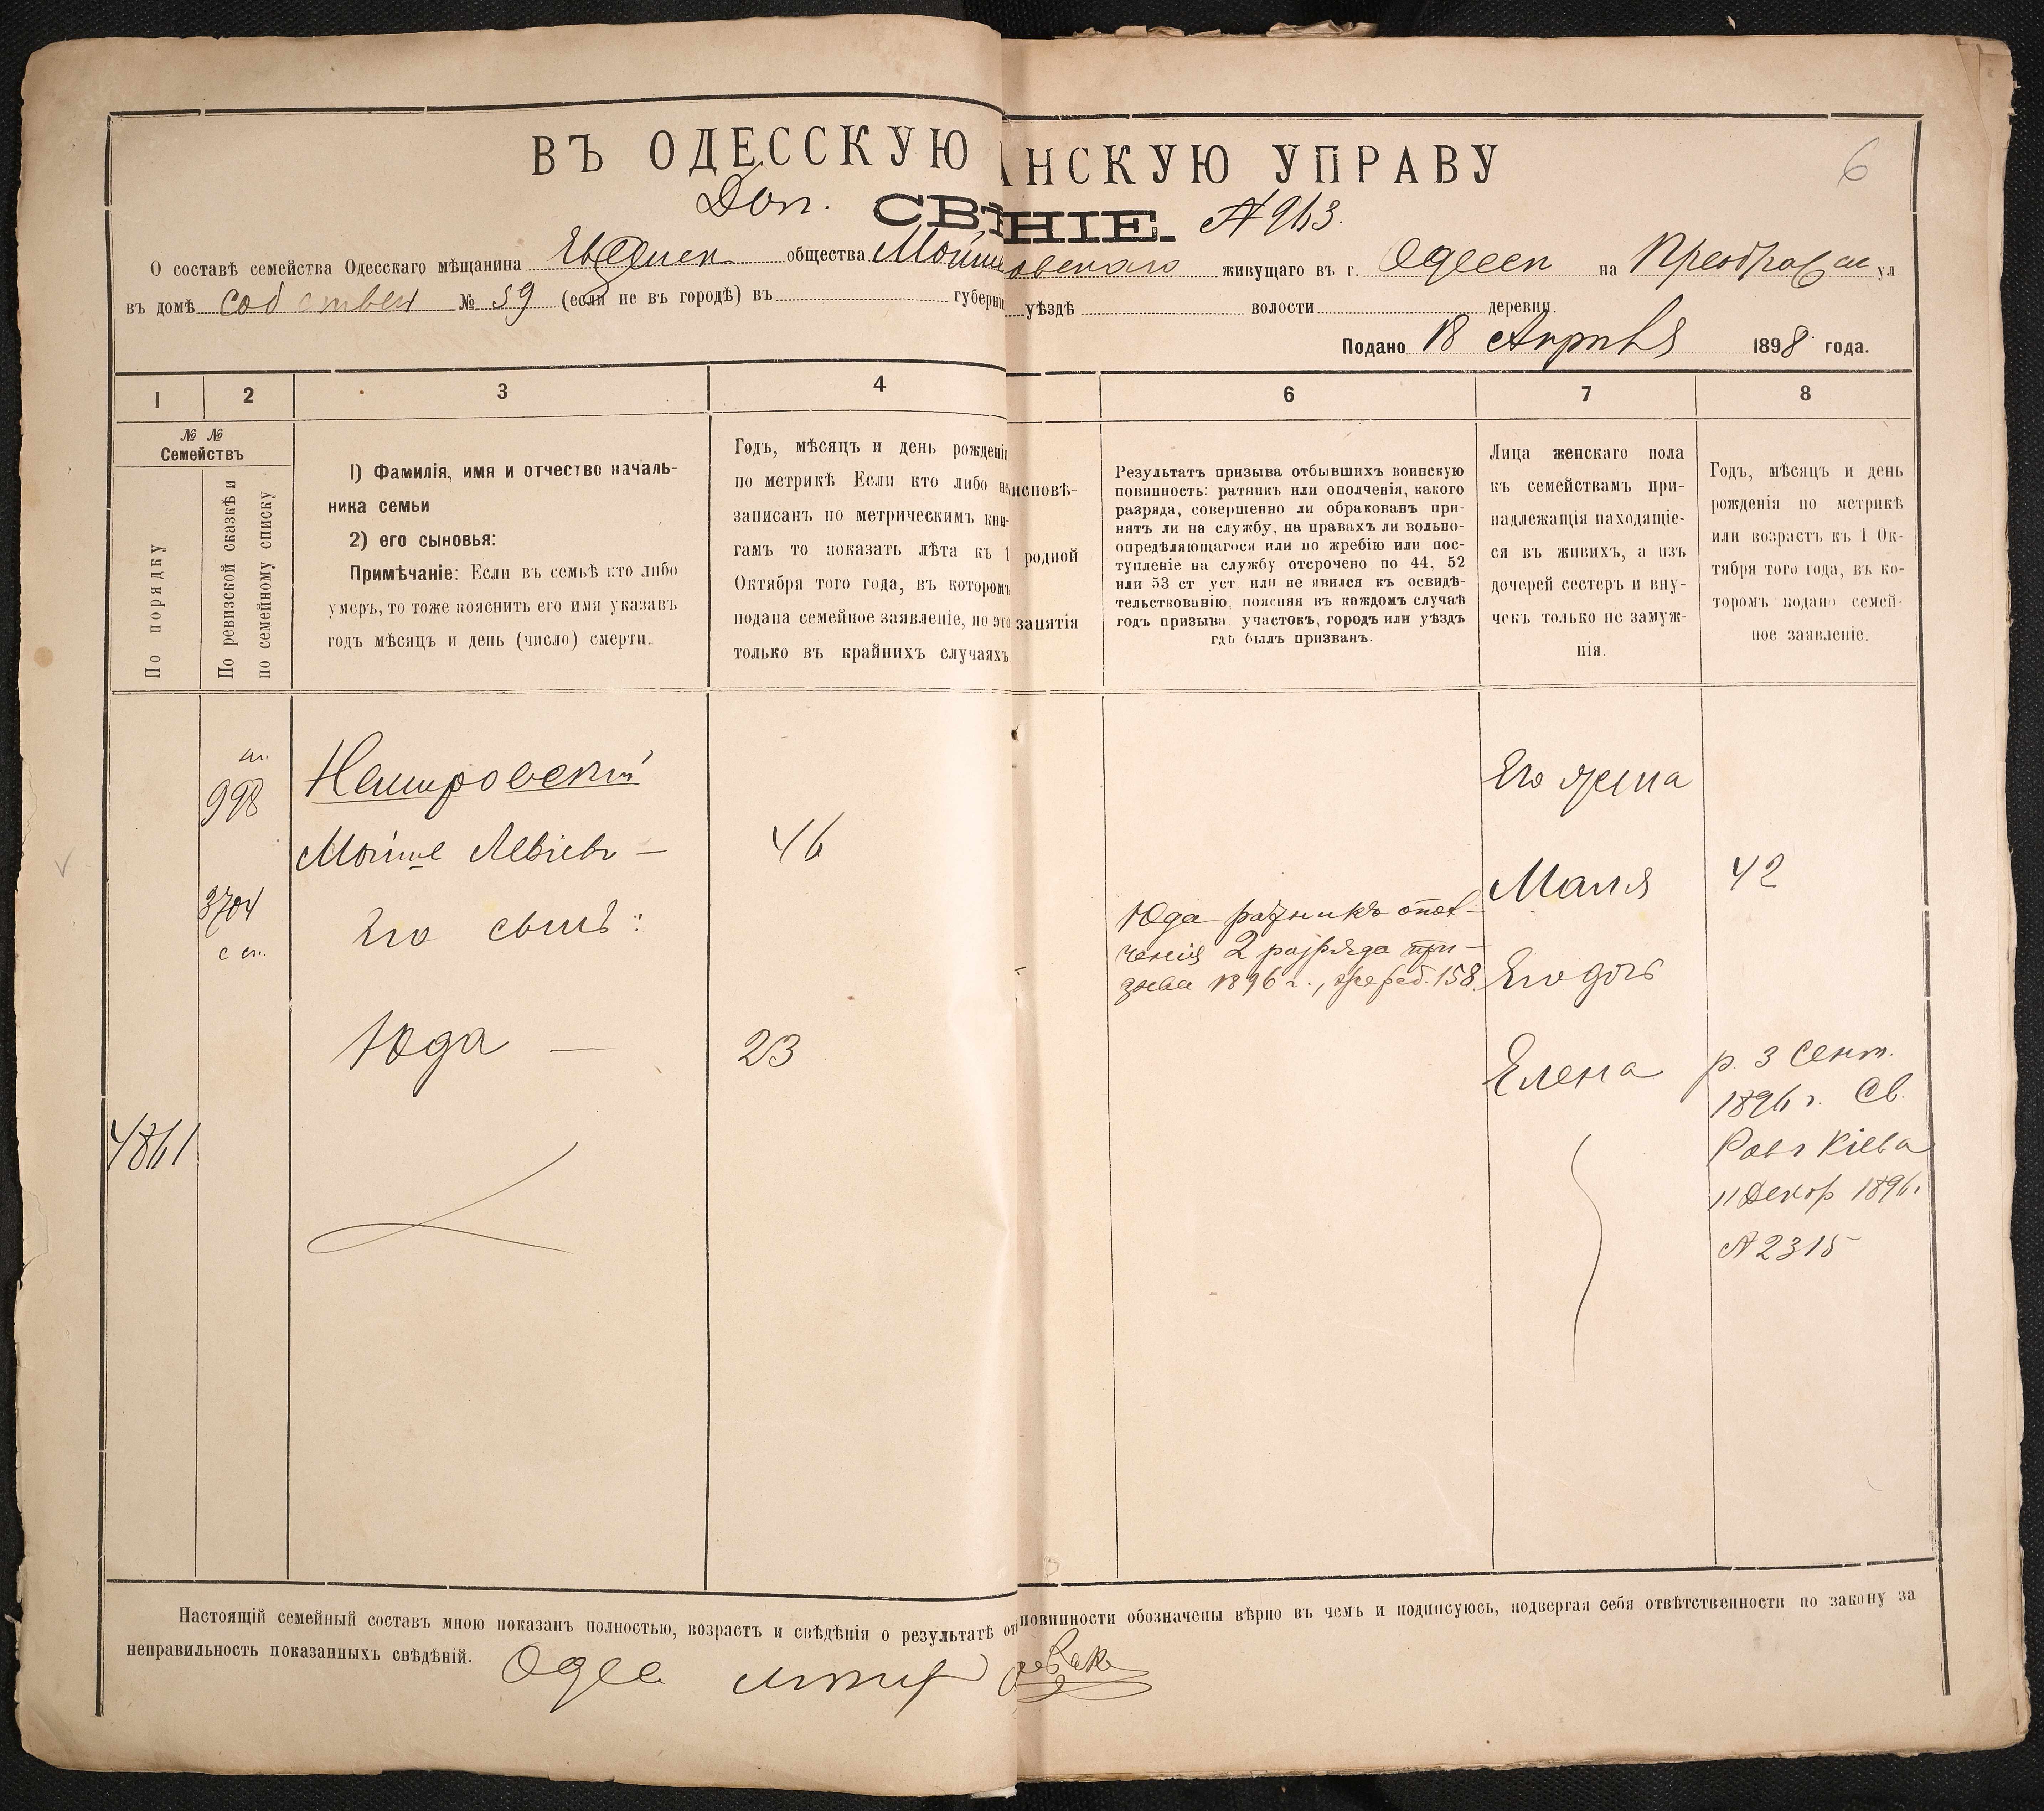 ВЪ ОДЕССКУЮ НСКУЮ УПРАВУ
6
Доп. СВ НІЕ. № 963.
О составѣ семейства Одесскаго мѣщанина общества живущаго въ г. Одесск на Преображ ул
въ домѣ собствен № 59 (если не въ городѣ) въ губерні уѣздѣ волости деревни.
Подано 18 Апрѣля 1898 года.
1 2 3 4 6 7 8
№ №
Семействъ
По порядку
По ревизской сказкѣ и
по семейному списку
1) Фамилія, имя и отчество началь-
ника семьи
2) его сыновья:
Примѣчаніе: Если въ семьѣ кто либо
умеръ, то тоже пояснить его имя указавъ
годъ мѣсяцъ и день (число) смерти.
Годъ, мѣсяцъ и день рожденія
по метрикѣ Если кто либо не
записанъ по метрическимъ кни-
гамъ то показать лѣта къ 1
Октября того года, въ которомъ
подана семейное заявленіе, но это
только въ крайнихъ случаяхъ
исповѣ-
родной
занятія
Результатъ призыва отбывшихъ воинскую
повинность: ратникъ или ополченія, какого
разряда, совершенно ли обракованъ при-
нятъ ли на службу, на правахъ ли вольно-
опредѣляющагося или по жребію или пос-
тупленіе на службу отсрочено по 44, 52
или 53 ст уст. или не явился къ освидѣ-
тельствованію, поясняя въ каждомъ случаѣ
годъ призыва, участокъ, городъ или уѣздъ
гдѣ былъ призванъ.
Лица женскаго пола
къ семействамъ при-
надлежащія находящіе-
ся въ живихъ, а изъ
дочерей сестеръ и вну-
чекъ только не замуж-
нія.
Годъ, мѣсяцъ и день
рожденія по метрикѣ
или возрастъ къ 1 Ок-
тября того года, въ ко-
торомъ подано семей-
ное заявленіе.
998
Немировскій
Мойше Левіевъ — 46
3704
с сп.
Его сынъ:
Юда — 23
4861
Юда ратникъ опол-
ченія 2 разряда при-
зыва 1896 г., жереб. 158.
Его жена
Маля 42
Его дочь
Елена р. 3 Сент.
1896 г. Св.
Рав г Кіева
11 Декабр 1896 г
№ 2315
Настоящій семейный составъ мною показанъ полностью, возрастъ и свѣдѣнія о результатѣ от повинности обозначены вѣрно въ чемъ и подписуюсь, подвергая себя отвѣтственности по закону за
неправильность показанныхъ свѣдѣній.